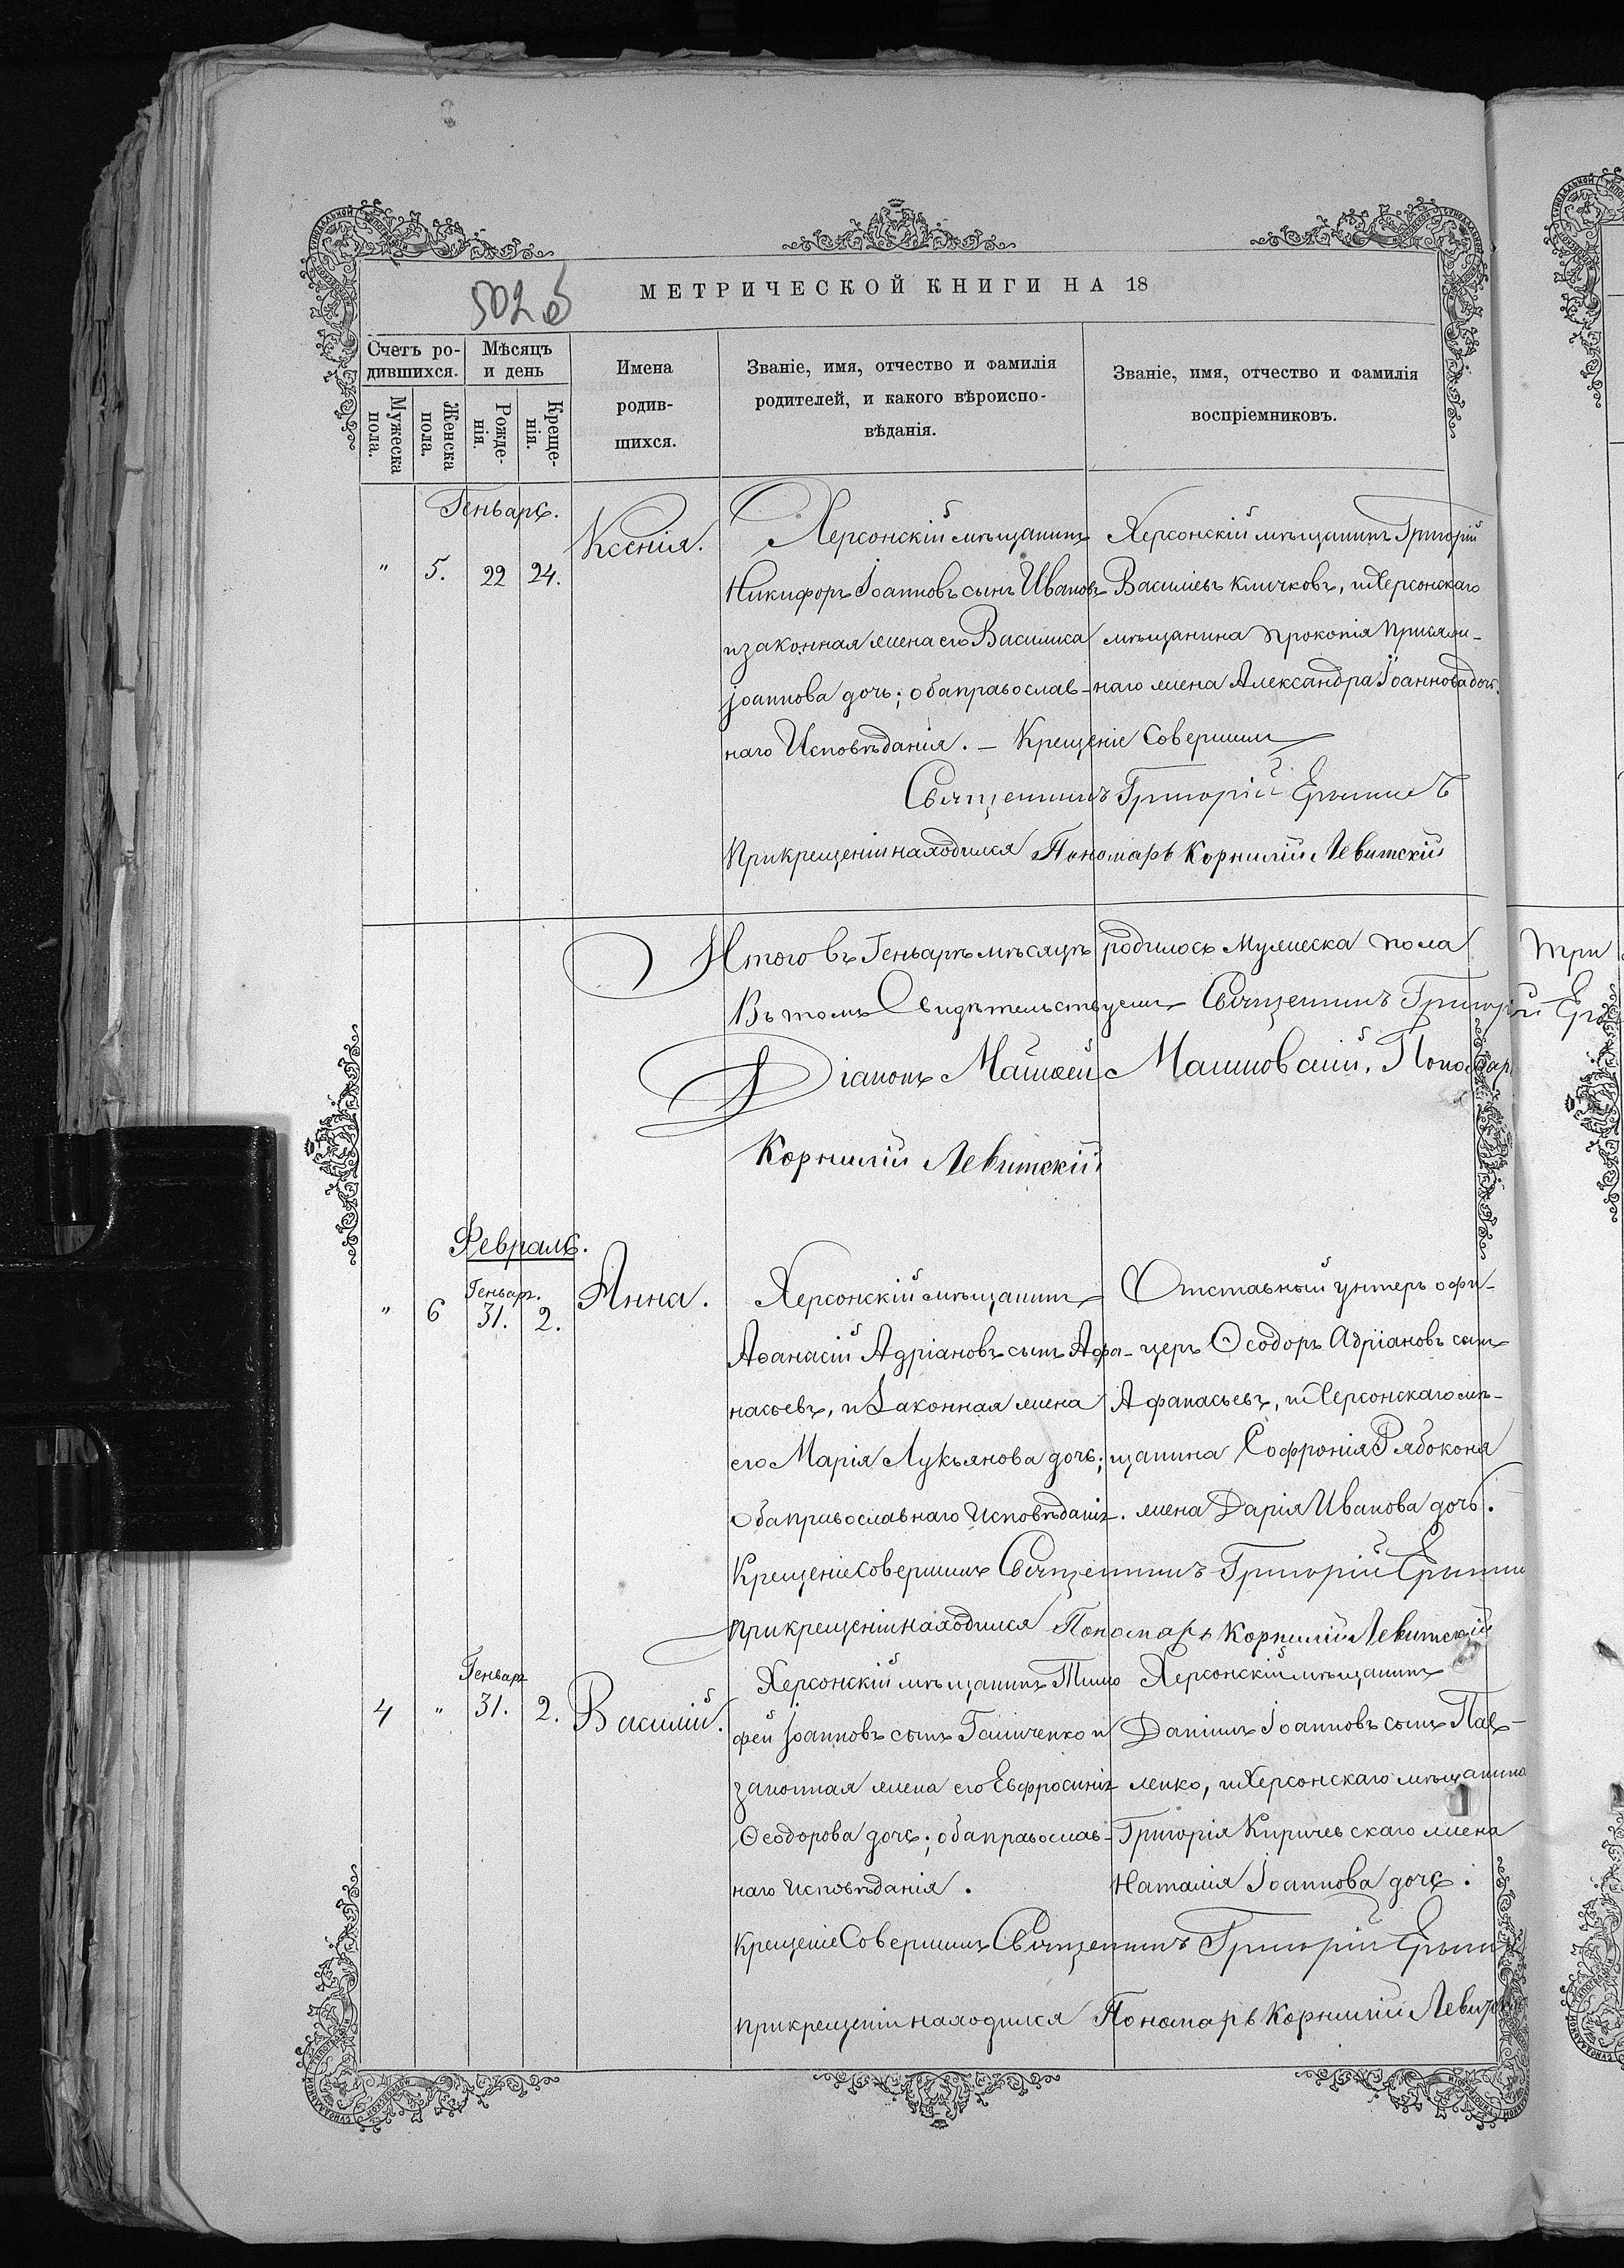 502 б
МЕТРИЧЕСКОЙ КНИГИ НА 18
Счетъ родившихся.
Мѣсяцъ и день
Мужеска пола.
Женска пола.
Рожденія.
Крещенія.
Имена родившихся.
Званіе, имя, отчество и фамилія родителей, и какого вѣроисповѣданія.
Званіе, имя, отчество и фамилія воспріемниковъ.
Генварь.
" 5. 22 24.
Ксенія.
Херсонскій мѣщанинъ
Никифоръ Іоанновъ сынъ Ивановъ
и законная жена его Василиса
Іоаннова дочь; оба православ-
наго Исповѣданія. – Крещеніе Совершилъ
Херсонскій мѣщанинъ Григорій
Василіевъ Клочковъ, и Херсонскаго
мѣщанина Прокопія
наго жена Александра Іоаннова доч.
Священникъ Григорій
При крещеніи находился Пономарь Корнилій Левитскій
Итого въ Генварѣ мѣсяцѣ родилось Мужеска пола три
Въ томъ Свидѣтельствуемъ Священникъ Григорій
Діаконъ Машковскій. Пономар
Корнилій Левитскій
Февраль.
" 6 Генвар. 31. 2.
Анна.
Херсонскій мѣщанинъ
Аѳанасій Адріановъ сынъ Афа-
насьевъ, и Законная жена
его Марія Лукьянова дочь;
Оба православнаго Исповѣданія.
Отставный унтеръ офи-
церъ Ѳеодоръ Адріановъ сынъ
Афанасьевъ, и Херсонскаго мѣ-
щанина Софронія Рябоконя
жена Дарія Иванова дочь.
Крещеніе Совершилъ Священникъ Григорій
При крещеніи находился Пономарь Корнилій Левитскій
4 " Генвар 31. 2.
Василій.
Херсонскій мѣщанинъ Тимо
фей Іоанновъ сынъ и
законная жена его Евфросинія
Ѳеодорова дочь; оба православ-
наго Исповѣданія.
Херсонскій мѣщанинъ
Даніилъ Іоанновъ сынъ Пав-
ленко, и Херсонскаго мѣщанина
Григорія Киричевскаго жена
Наталія Іоаннова дочь.
Крещеніе Совершилъ Священникъ Григорій
При крещеніи находился Пономарь Корнилій